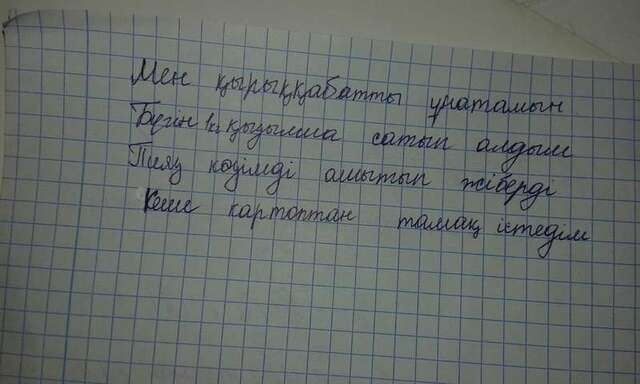 Мен қырыққабатты ұнатамын
Бүгін 1кг қызылша сатып алдым
Пияз көзімді ашытып жіберді
Кеше картоптан тамақ істедім